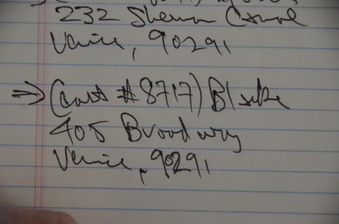 232 Sherman Canal
Venice, 90291
⇒ (cust #8717) Blake
405 Broadway
Venice, 90291